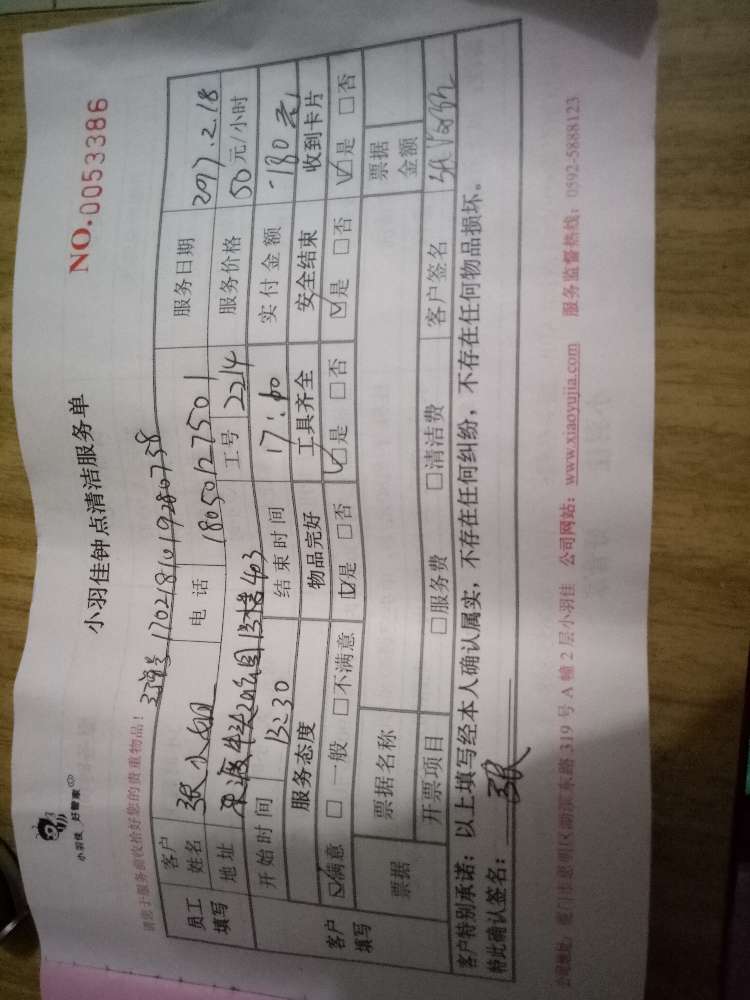 小羽佳 好管家
小羽佳钟点清洁服务单
NO.0053386
请您于服务前收拾好您的贵重物品！
1702181019280738
员工填写
客户姓名 张小姐 电话 18050127501 服务日期 2017.2.18
地址 403 工号 2214 服务价格 50元/小时
开始时间 13:30 结束时间 17:00 实付金额 180元
客户填写
服务态度 物品完好 工具齐全 安全结束 收到卡片
☑满意 □一般 □不满意 ☑是 □否 ☑是 □否 ☑是 □否 ☑是 □否
票据 票据名称 票据金额
开票项目 □服务费 □清洁费 客户签名
客户特别承诺：以上填写经本人确认属实，不存在任何纠纷，不存在任何物品损坏。
特此确认签名： 张
公司地址：厦门市思明区湖滨东路319号A幢2层小羽佳 公司网站：www.xiaoyujia.com 服务监督热线：0592-5888123